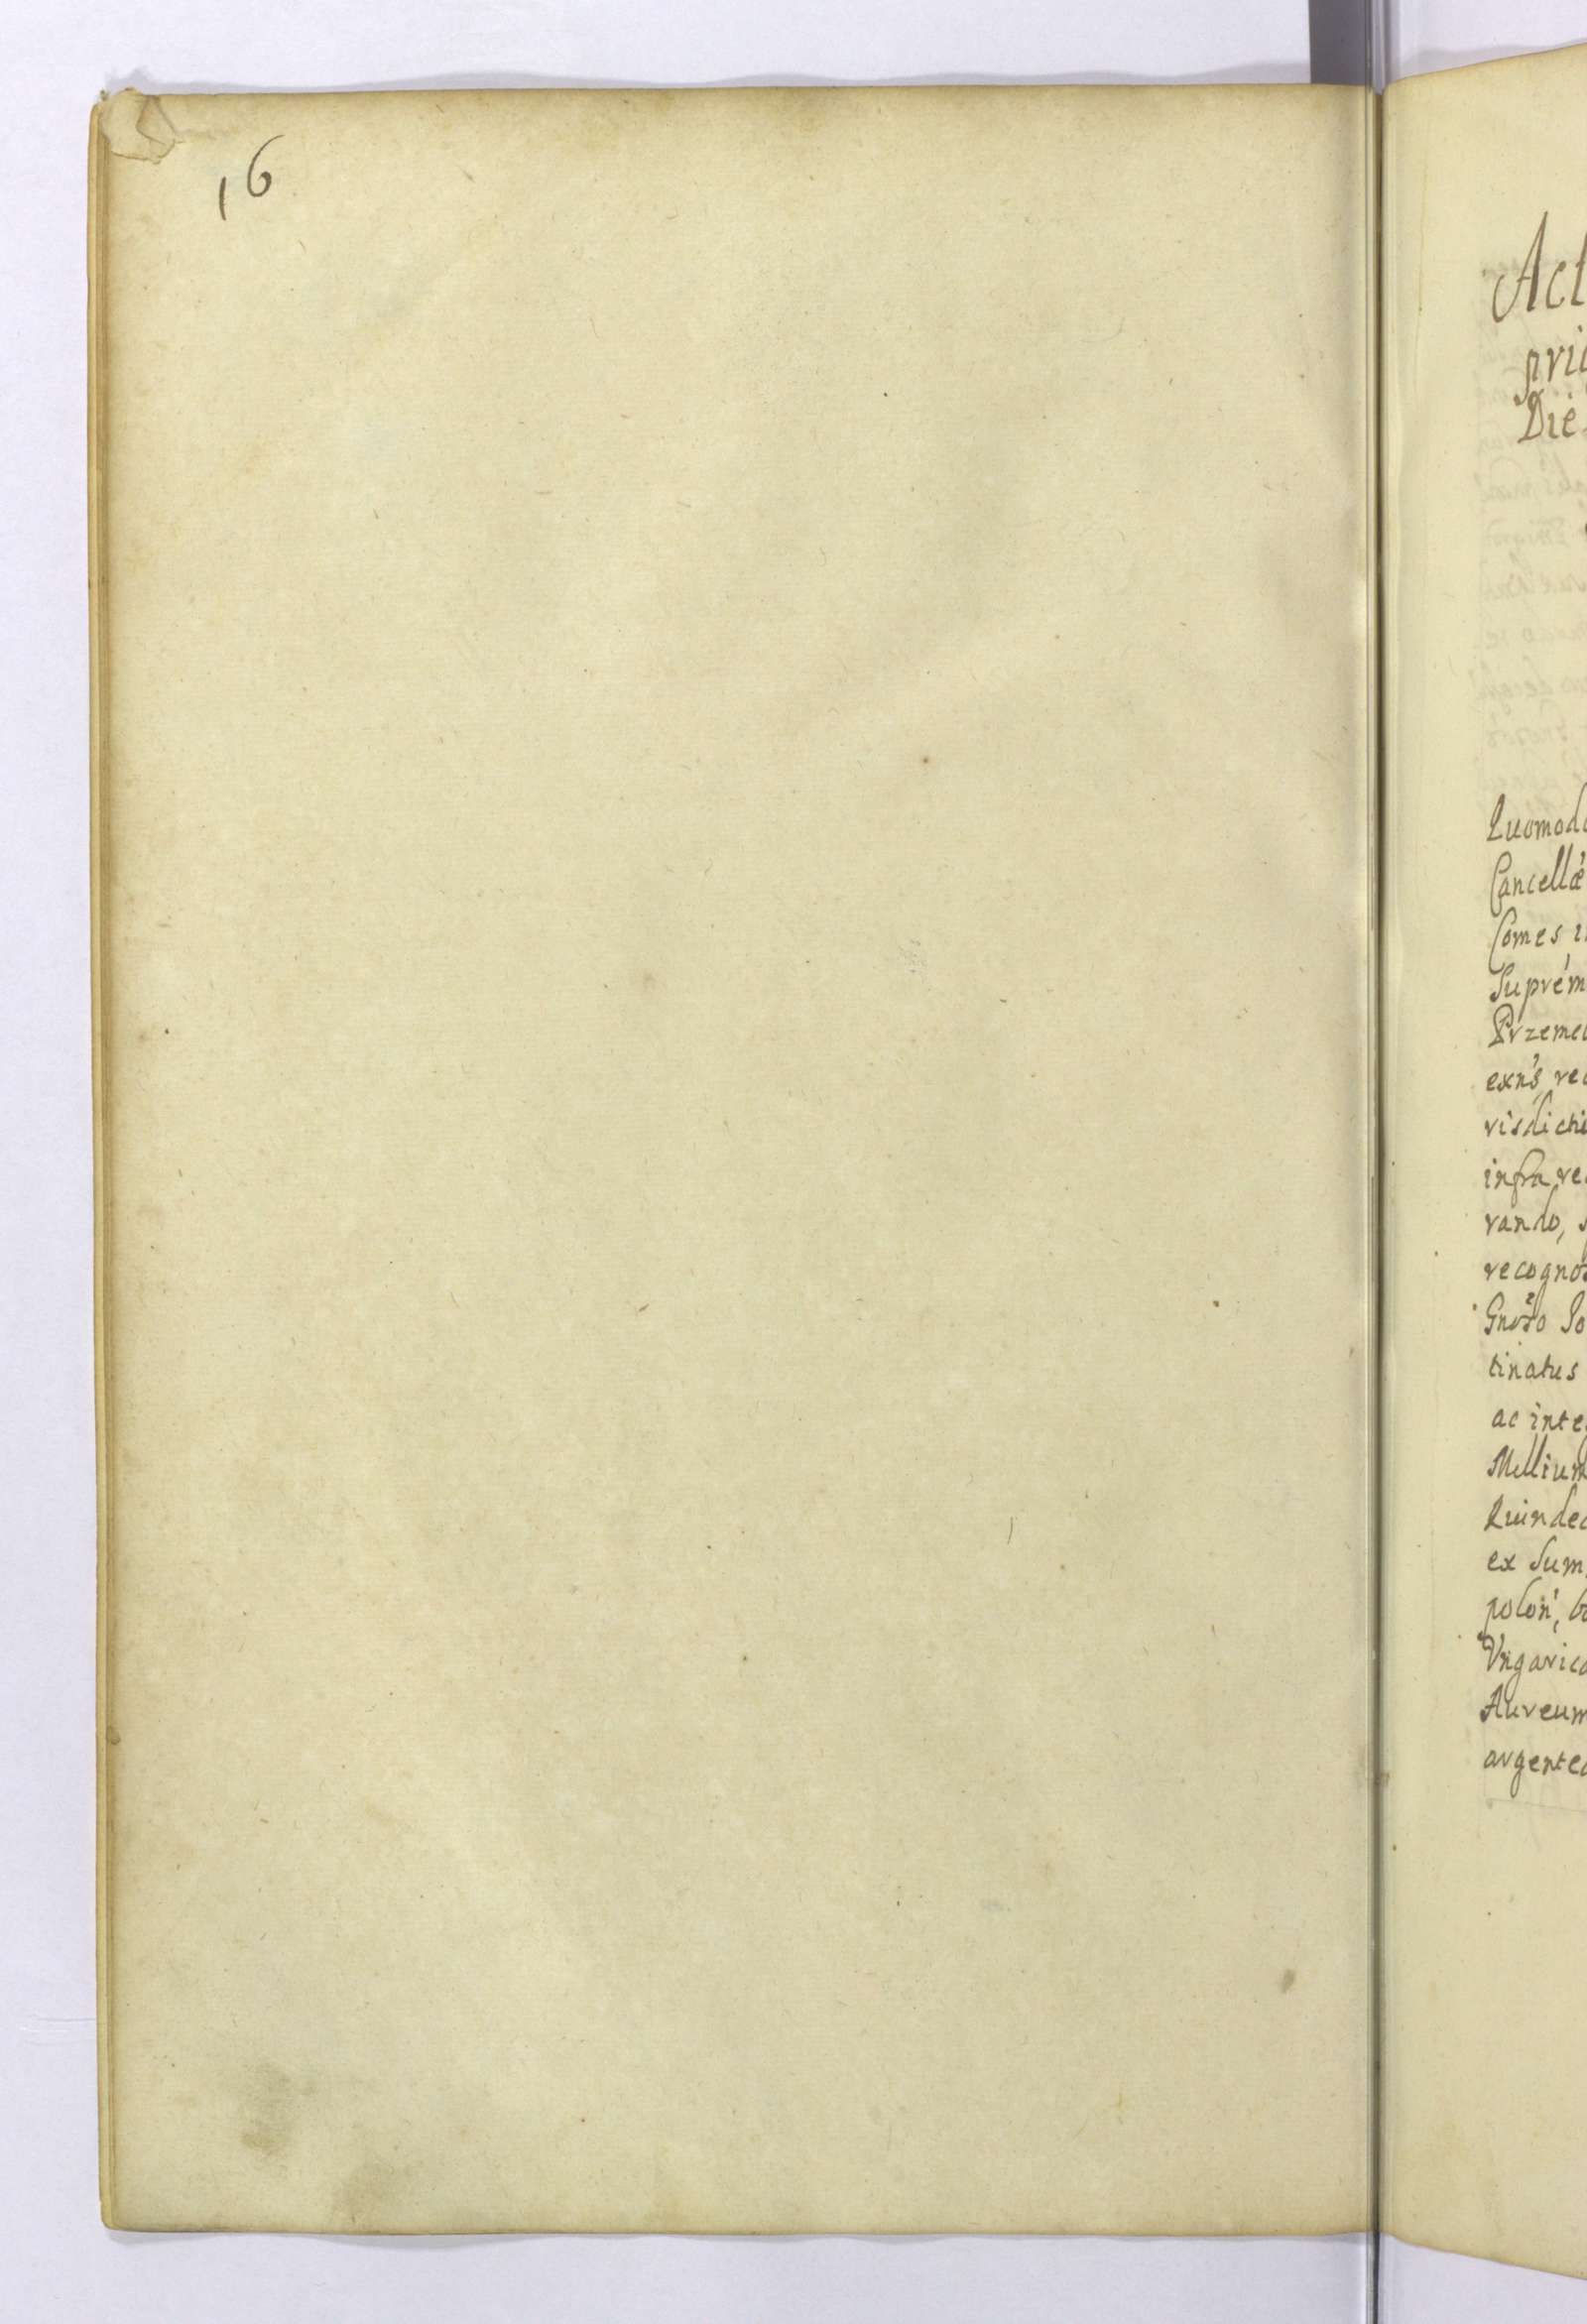 16
Act
pri
Die
Quomodo
Cancellæ
Comes i
Suprem
Przeme
exn's re
risdicti
infra re
rando,
recognos
Gnoso Jo
tinatus
ac inte
Millium
Quindec
ex Sum
polon', b
Ungarica
Aureum
argente